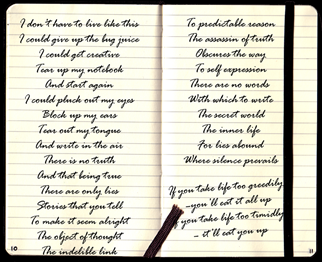 I don't have to live like this
I could give up the bug juice
I could get creative
Tear up my notebook
And start again
I could pluck out my eyes
Block up my ears
Tear out my tongue
And write in the air
There is no truth
And that being true
There are only lies
Stories that you tell
To make it seem alright
The object of thought
The indelible link
10
To predictable reason
The assassin of truth
Obscures the way
To self expression
There are no words
With which to write
The secret world
The inner life
For lies abound
Where silence prevails
If you take life too greedily
-you'll eat it all up
If you take life too timidly
- it'll eat you up
11